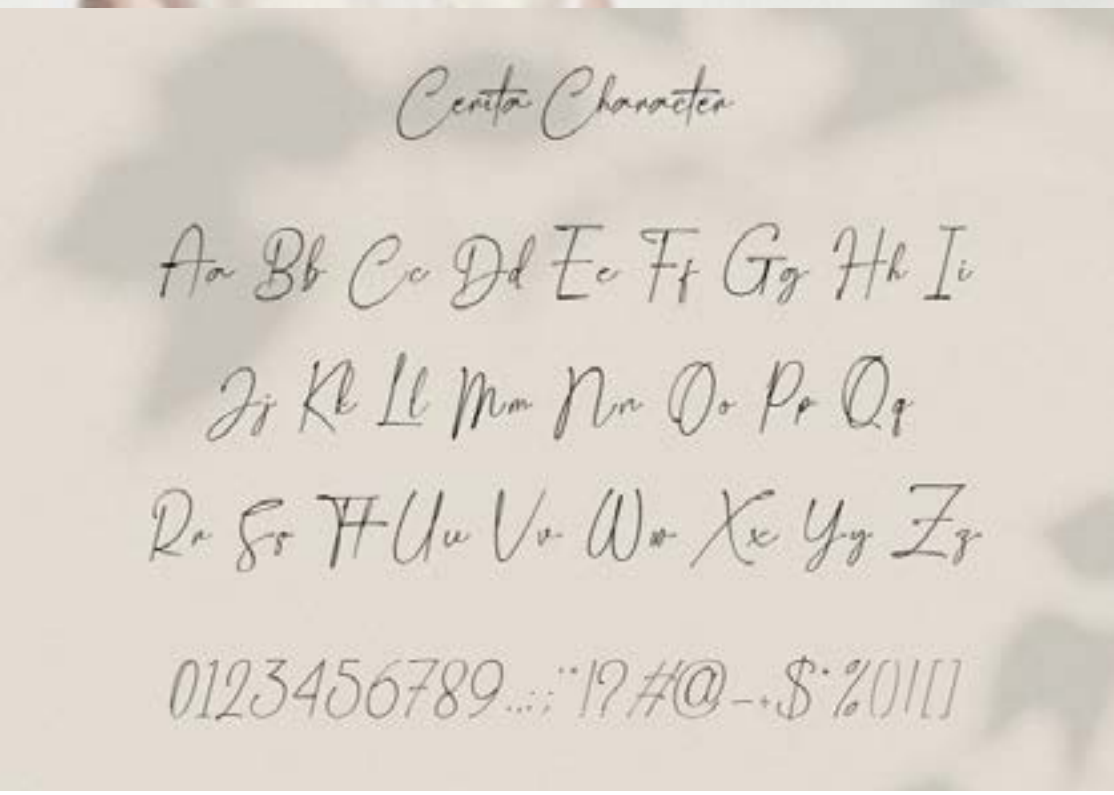 Cerita Character
Aa Bb Cc Dd Ee Ff Gg Hh Ii
Jj Kk Ll Mm Nn Oo Pp Qq
Rr Ss Tt Uu Vv Ww Xx Yy Zz
0123456789.,:;¨!?#@-+$*%()|[]